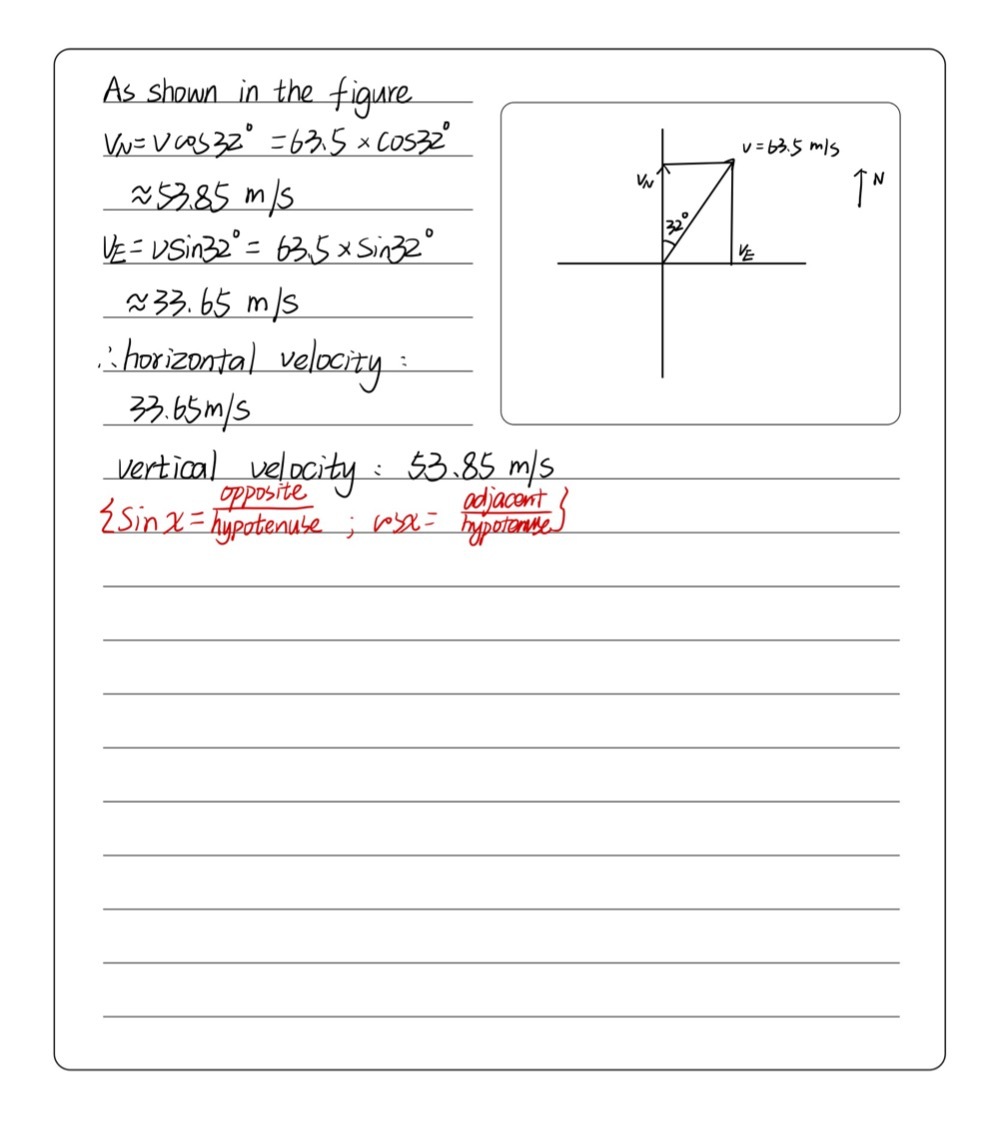 As shown in the figure
V_N = v cos32° = 63.5 × cos32°
≈ 53.85 m/s
V_E = v sin32° = 63.5 × sin32°
≈ 33.65 m/s
∴ horizontal velocity :
33.65 m/s
vertical velocity : 53.85 m/s
{sin x = opposite/hypotenuse ; cos x = adjacent/hypotenuse}
v = 63.5 m/s
V_N
↑ N
32°
V_E